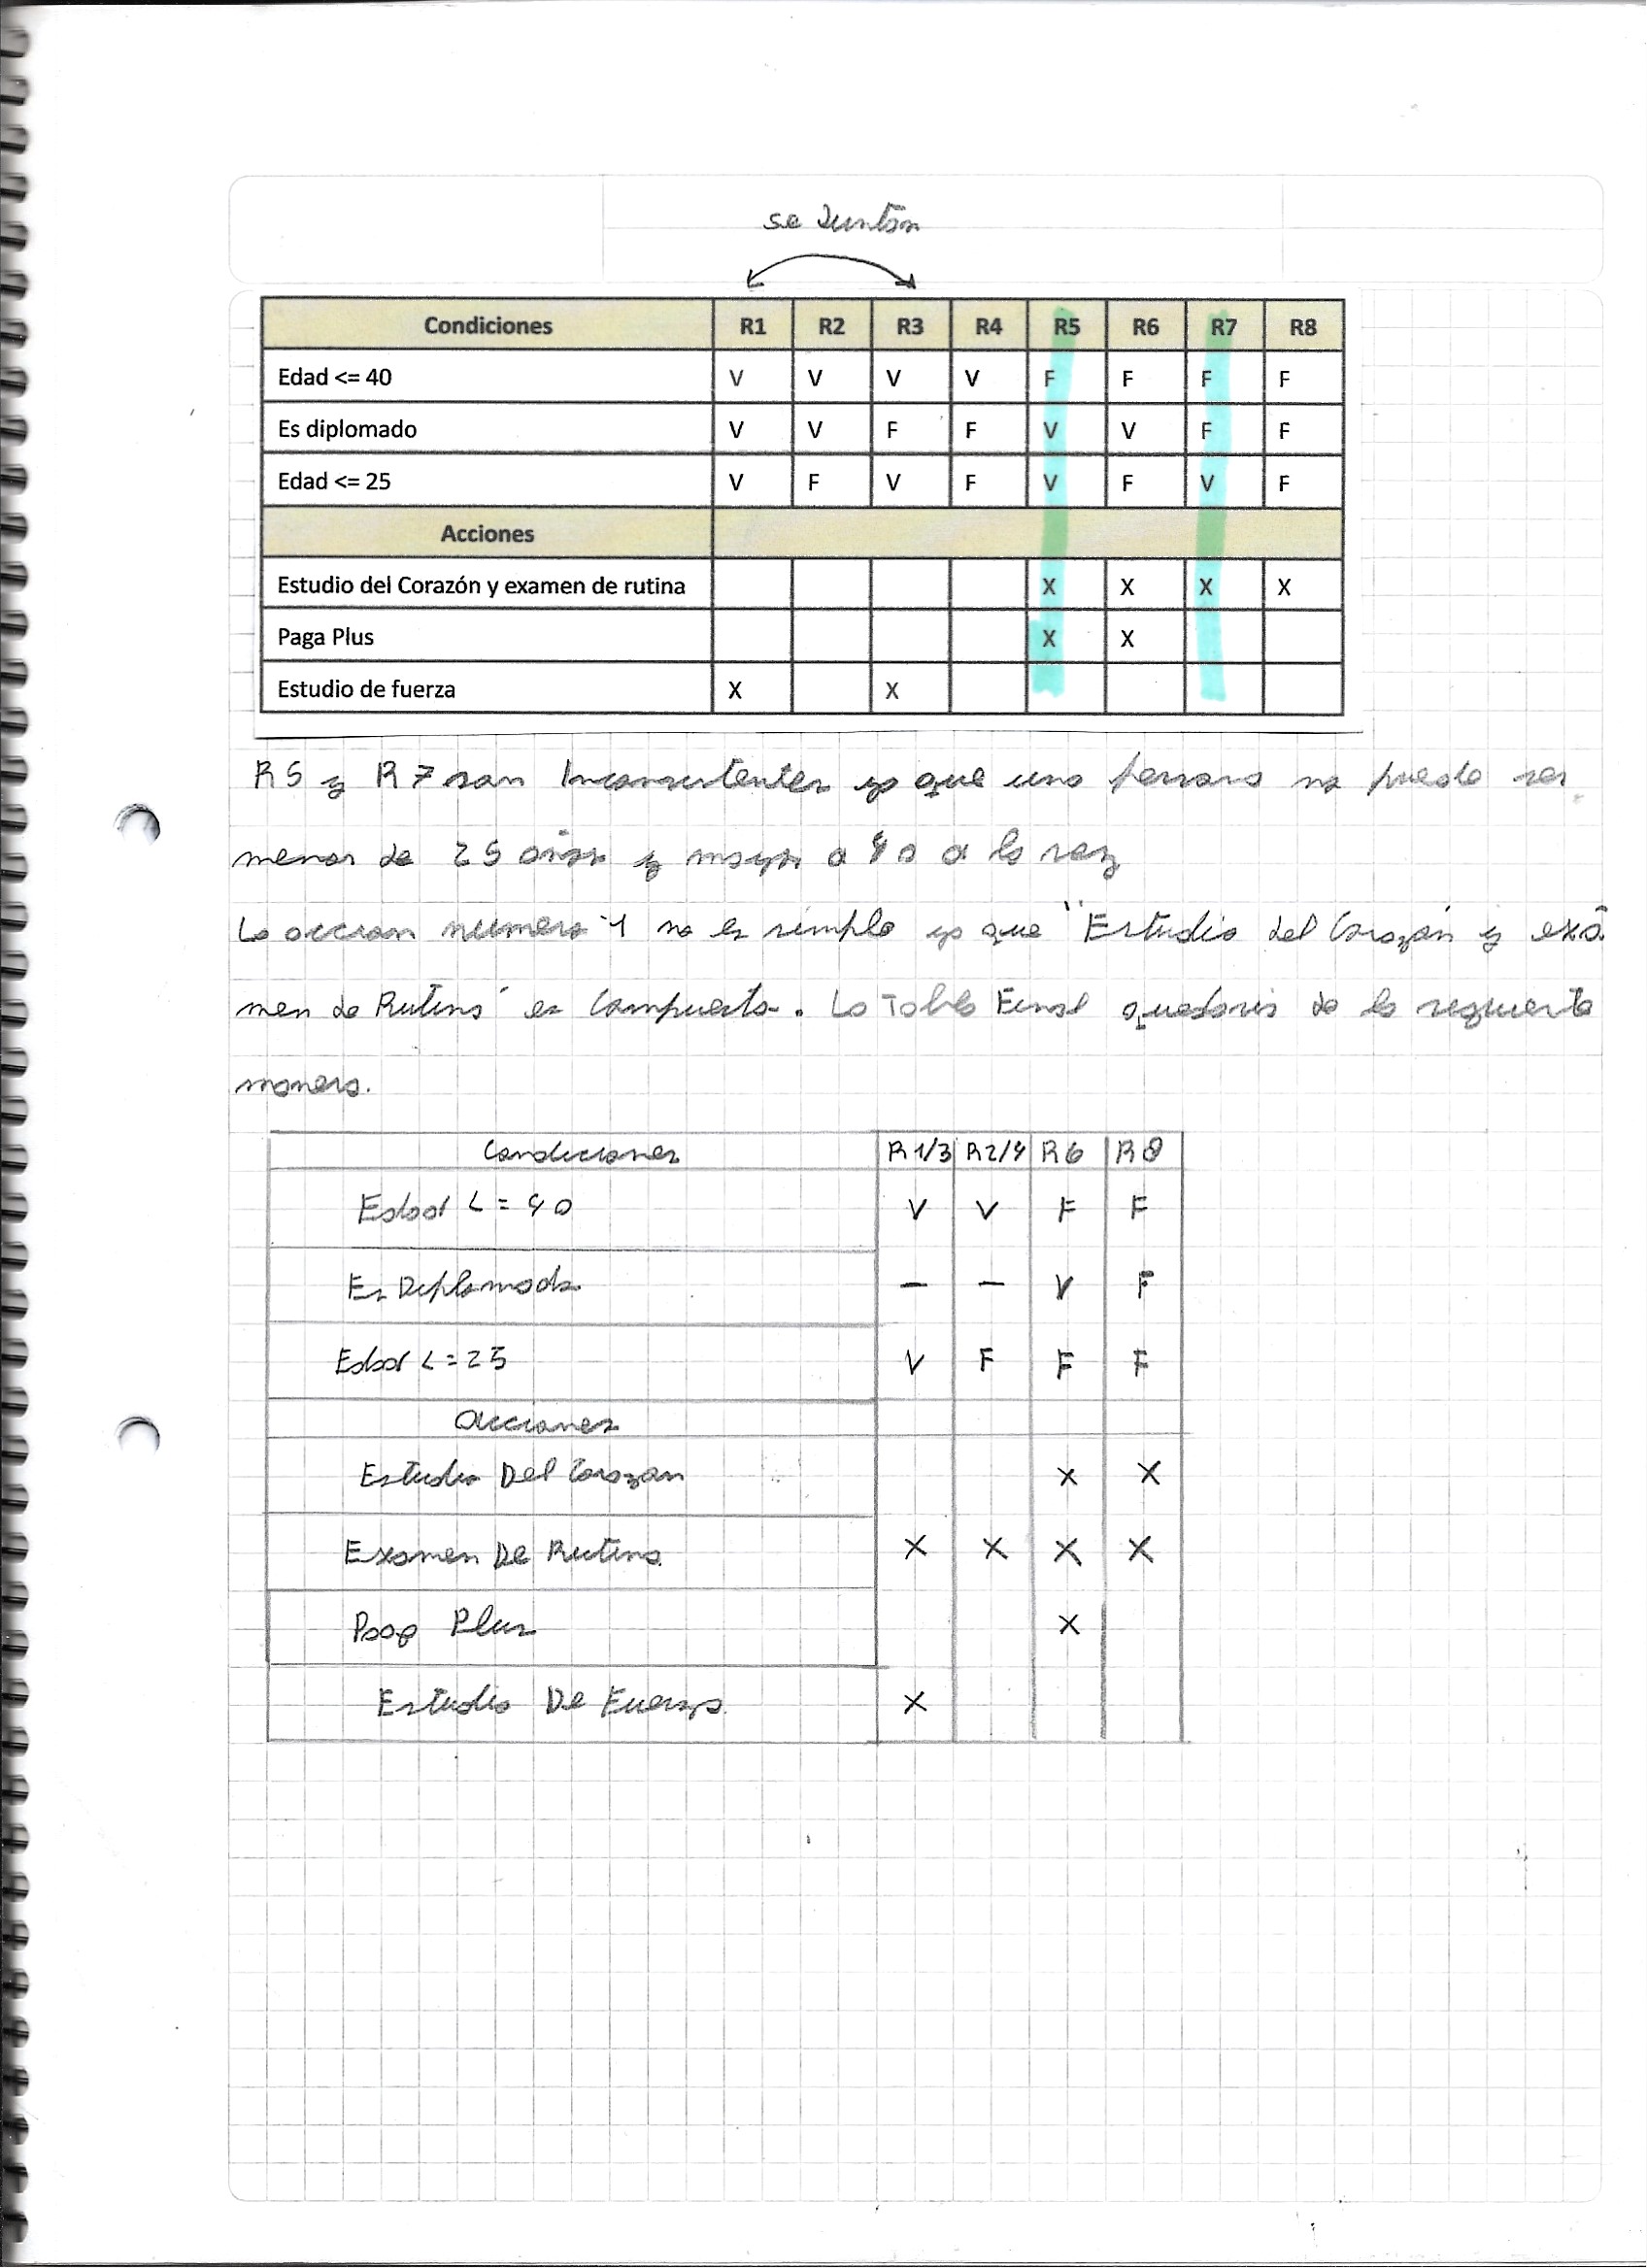 se Juntan
Condiciones R1 R2 R3 R4 R5 R6 R7 R8
Edad <= 40 V V V V F F F F
Es diplomado V V F F V V F F
Edad <= 25 V F V F V F V F
Acciones
Estudio del Corazón y examen de rutina X X X X
Paga Plus X X
Estudio de fuerza X X
R5 y R7 son Inconsistentes ya que una persona no puede ser
menor de 25 años y mayor a 40 a la vez
La accion numero 1 no es simple ya que "Estudio del Corazón y exá
men de Rutina" es Compuesta. La Tabla Final quedaria de la siguiente
manera.
Condiciones R1/3 R2/4 R6 R8
Edad <= 40 V V F F
Es Diplomado — — V F
Edad <= 25 V F F F
Acciones
Estudio Del Corazon X X
Examen De Rutina X X X X
Paga Plus X
Estudio De Fuerza X